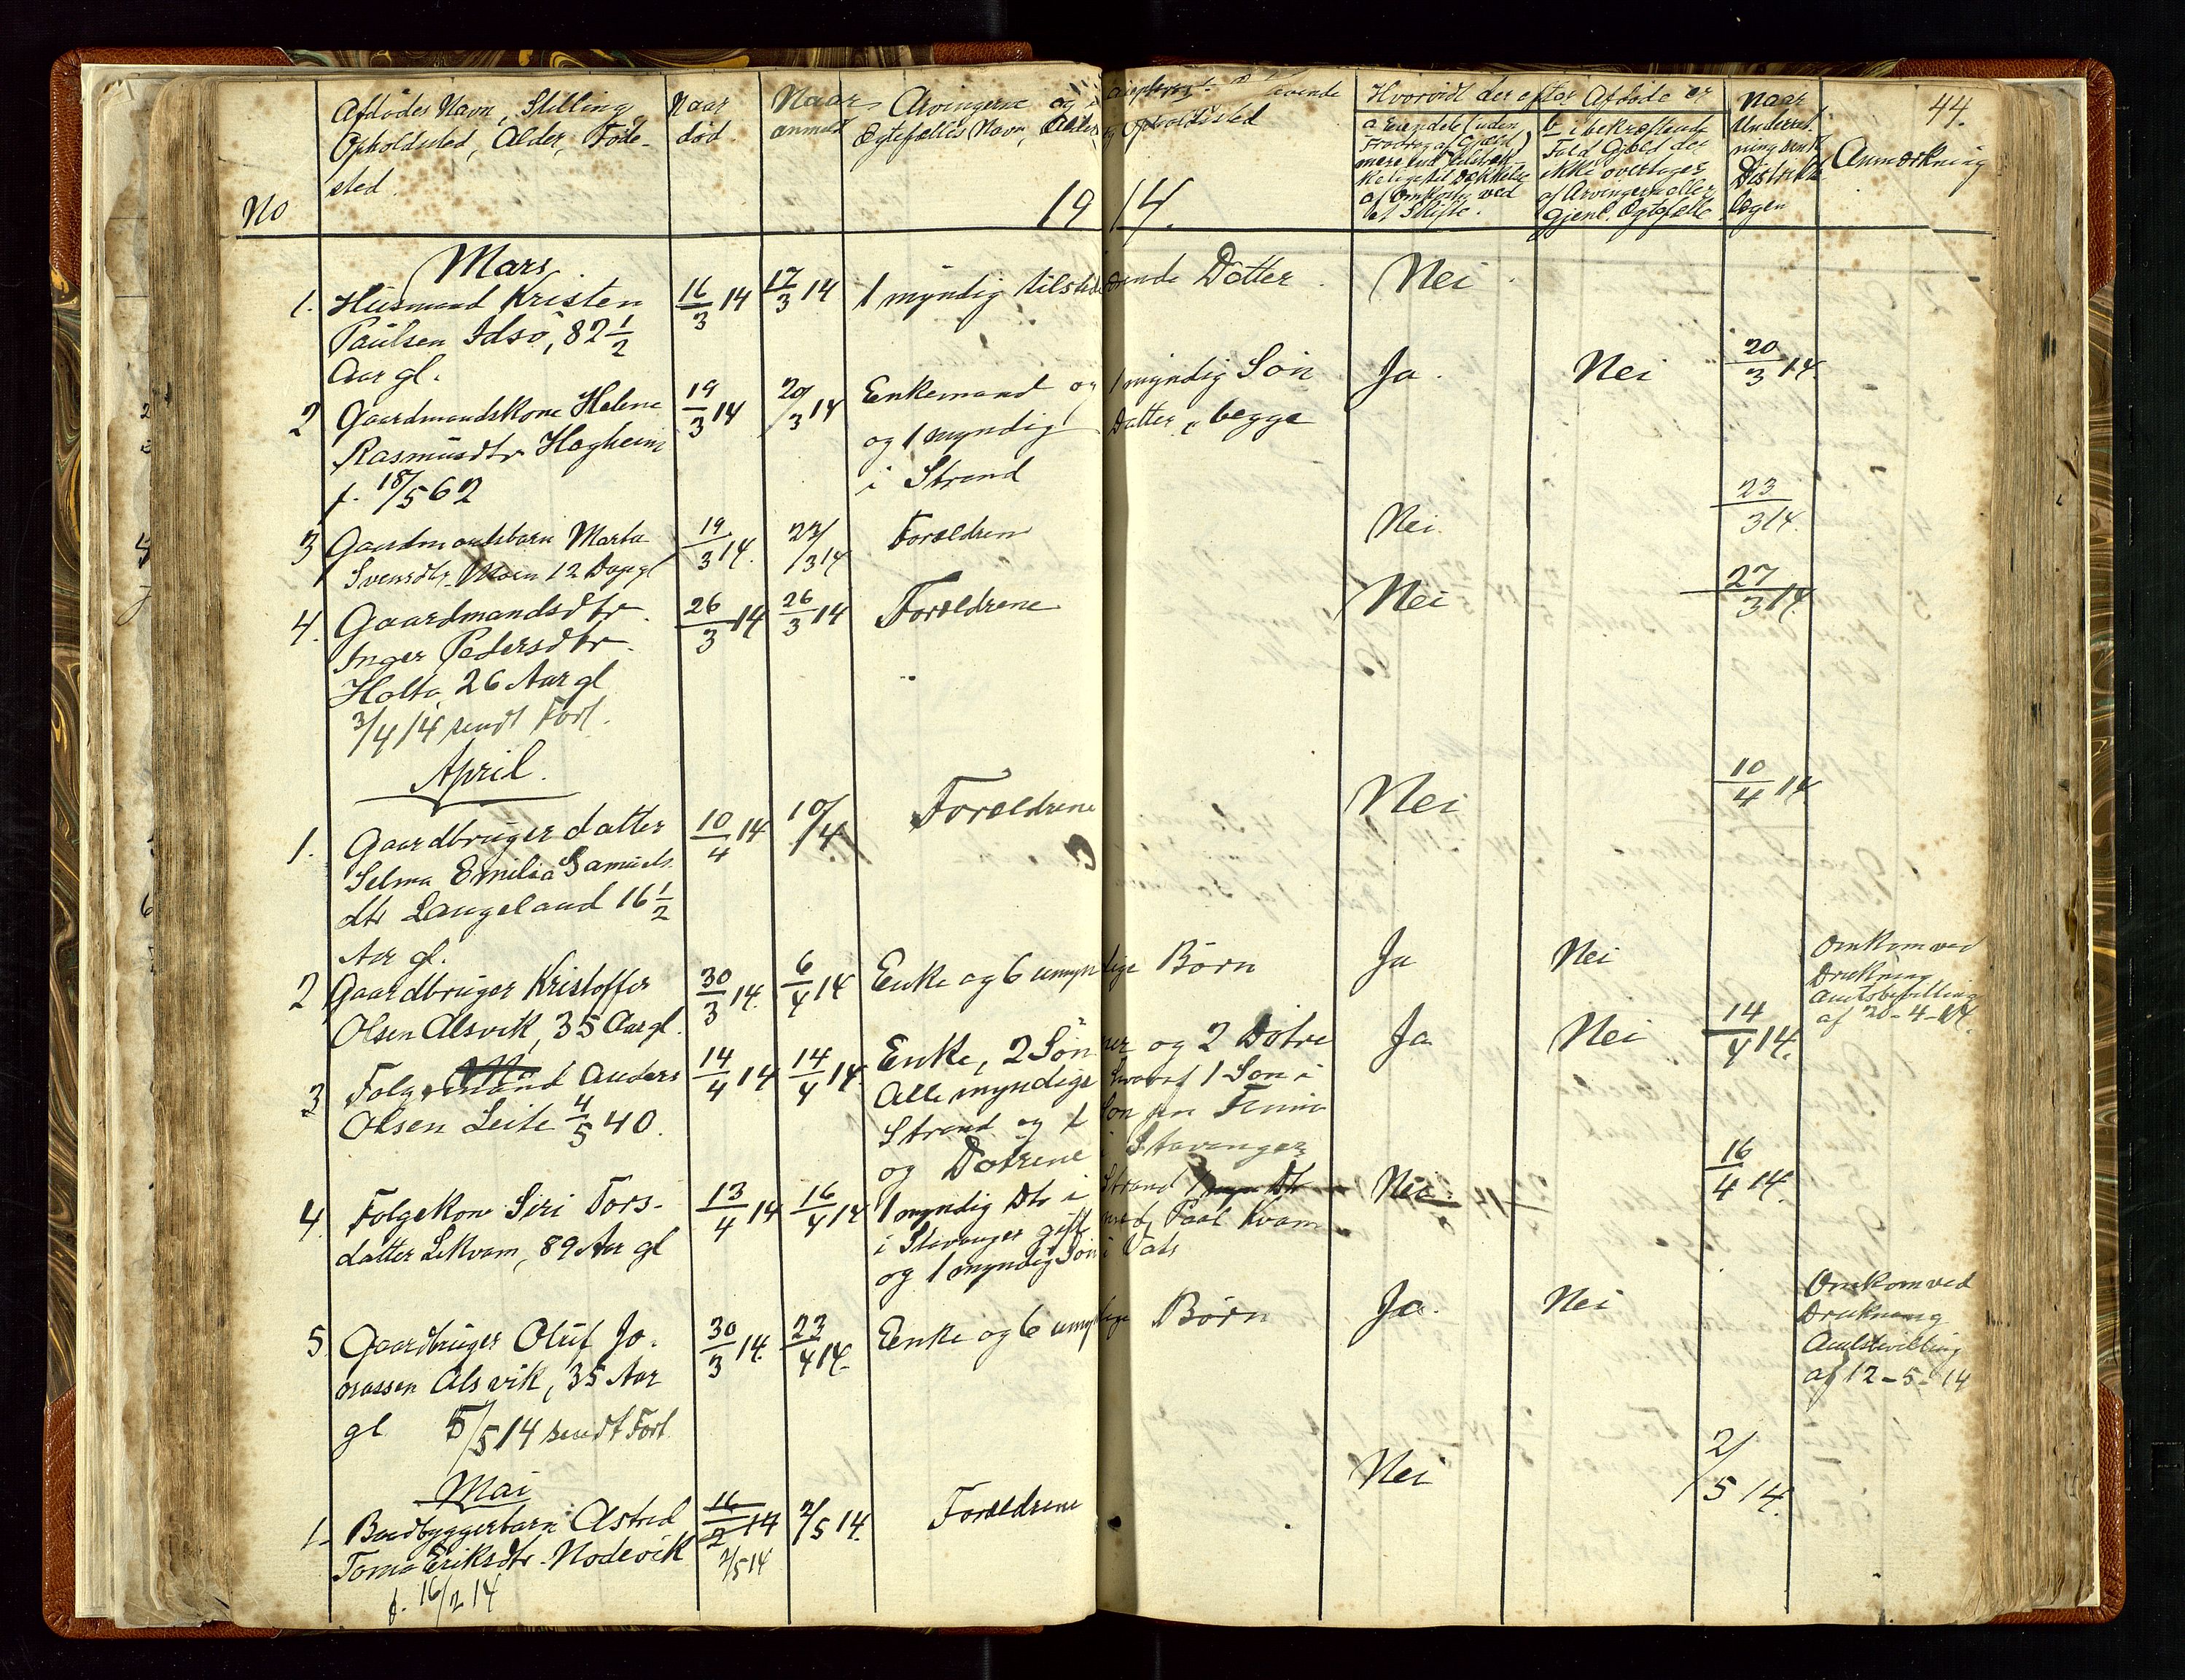 44.
No
Afdødes Navn, Stilling
Opholdssted, Alder, Føde-
sted
Naar
død.
Naar
anmeldt
Arvingerne og
Ægtefælles Navn, Alder, og Opholdssted
1914.
Hvorvidt der efter Afdøde er
a Eiendele (uden
Fradrag af Gjæld)
mere end tilstræk-
kelige til Dækkelse
af Omkostn. ved
et Skifte.
b i bekræftende
Fald Gjæld der
ikke overtages
af Arvingerne eller
Gjenl. Ægtefælle
Naar
Underret-
ning sendt
Distrikts
lægen
Anmærkning
Mars
1. Husmand Kristen
Paulsen Idsø, 82 1/2
Aar gl.
16/3 14
17/3 14
1 myndig tilstedeværende Datter.
Nei
2 Gaardmandskone Helene
Rasmusdtr Hagheim
f. 18/5 62
19/3 14
20/3 14
Enkemand og 1 myndig Søn
og 1 myndig Datter, begge
i Strand
Ja.
Nei
20/3 14.
3 Gaardmandsbarn Marta
Svensdtr. Moen 12 Dage gl
19/3 14.
23/3 14
Forældrene
Nei
23/3 14.
4. Gaardmandsdtr.
Inger Pedersdtr.
Holta, 26 Aar gl
3/4 14 sendt Fort.
26/3 14
26/3 14
Forældrene
Nei
27/3 14.
April.
1. Gaardbruger datter
Selma Emilia Samuels
dtr Langeland 16 1/2
Aar gl.
10/4 14
10/4
Forældrene
Nei
10/4 14
2 Gaardbruger Kristoffer
Olsen Alsvik, 35 Aar gl.
30/3 14.
6/4 14
Enke og 6 umyndige Børn
Ja
Nei
Omkom ved
Drukning
Amtsbevilling
af 20-4-14.
3 Folgemand Anders
Olsen Leite 4/5 40.
14/4 14
14/4 14.
Enke, 2 Sønner og 2 Døtre
Alle myndige hvoraf 1 Søn i
Strand og 1 Søn
og Døtrene i Stavanger
Ja
Nei
14/4 14.
4. Folgekone Siri Tors-
datter Lekvam, 89 Aar gl
13/4 14
16/4 14
1 myndig Dtr i Strand 1 myn Dtr
i Stavanger gift med Paal Kvam
og 1 myndig Søn i Vats
Nei.
16/4 14.
5. Gaardbruger Oluf Jo-
nassen Alsvik, 35 Aar
gl 5/5 14 sendt Fort
30/3 14.
23/4 14.
Enke og 6 umyndige Børn
Ja.
Nei
Omkom ved
Drukning
Amtsbevilling
af 12-5-14
Mai
1. Baadbyggerbarn Astrid
Toma Eriksdtr. Nodevik
f. 16/2 14
16/2 14
2/5 14
2/5 14.
Forældrene
Nei
2/5 14.